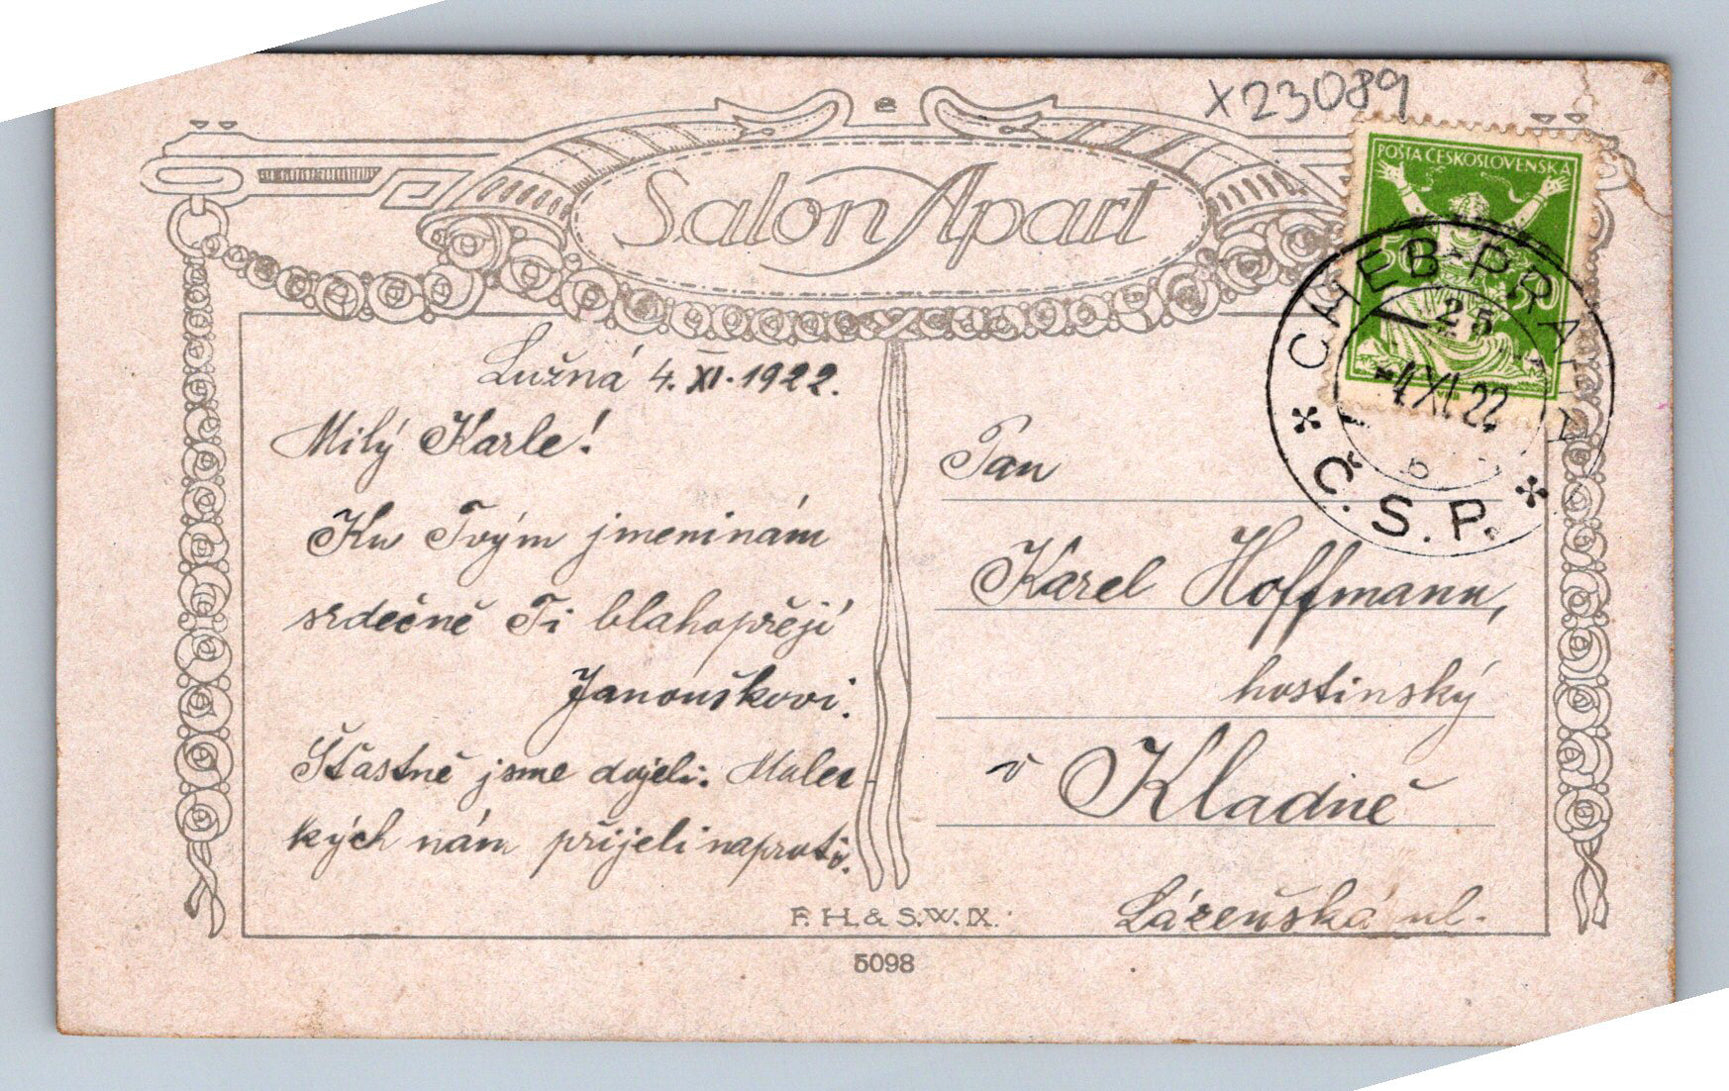 x23089
Salon Apart
POŠTA ČESKOSLOVENSKÁ
50 50
CHEB-PRAHA
25
-4 XI 22
b
Č.S.P.
Lužná 4. XI. 1922.
Milý Karle!
Ku Tvým jmeninám
srdečně Ti blahopřejí
Janouškovi.
Šťastně jsme dojeli. Malei
kých nám přijeli naproti.
Pan
Karel Hoffmann,
hostinský
v Kladně
Lázeňská ul.
F. H. & S. W. IX.
5098